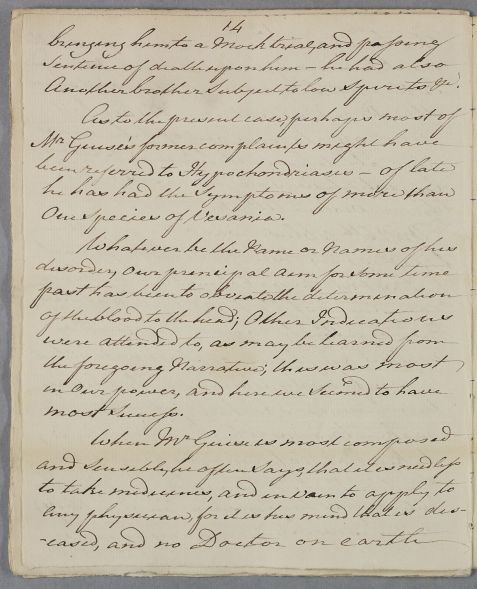 14
bringing him to a Mock trial, and passing
Sentence of death upon him – he had also
Another brother Subject to low Spirits &c.
As to the present case, perhaps most of
Mr Geuse's former complaints might have
been referred to Hypochondriasis – of late
he has had the Symptoms of more than
One Species of Vesania.
Whatever be the Name or Names of his
disorder, Our principal aim for some time
past has been to obviate the determination
of the blood to the head; Other Indications
were attended to, as may be learned from
the foregoing Narrative; this was most
in Our power, and here we Seem'd to have
most Success.
When Mr Geuse is most composed
and Sensible, he often Says, that it is needless
to take medicines, and in vain to apply to
Any physician, for it is his mind that is dis-
-eased, and no Doctor on earth